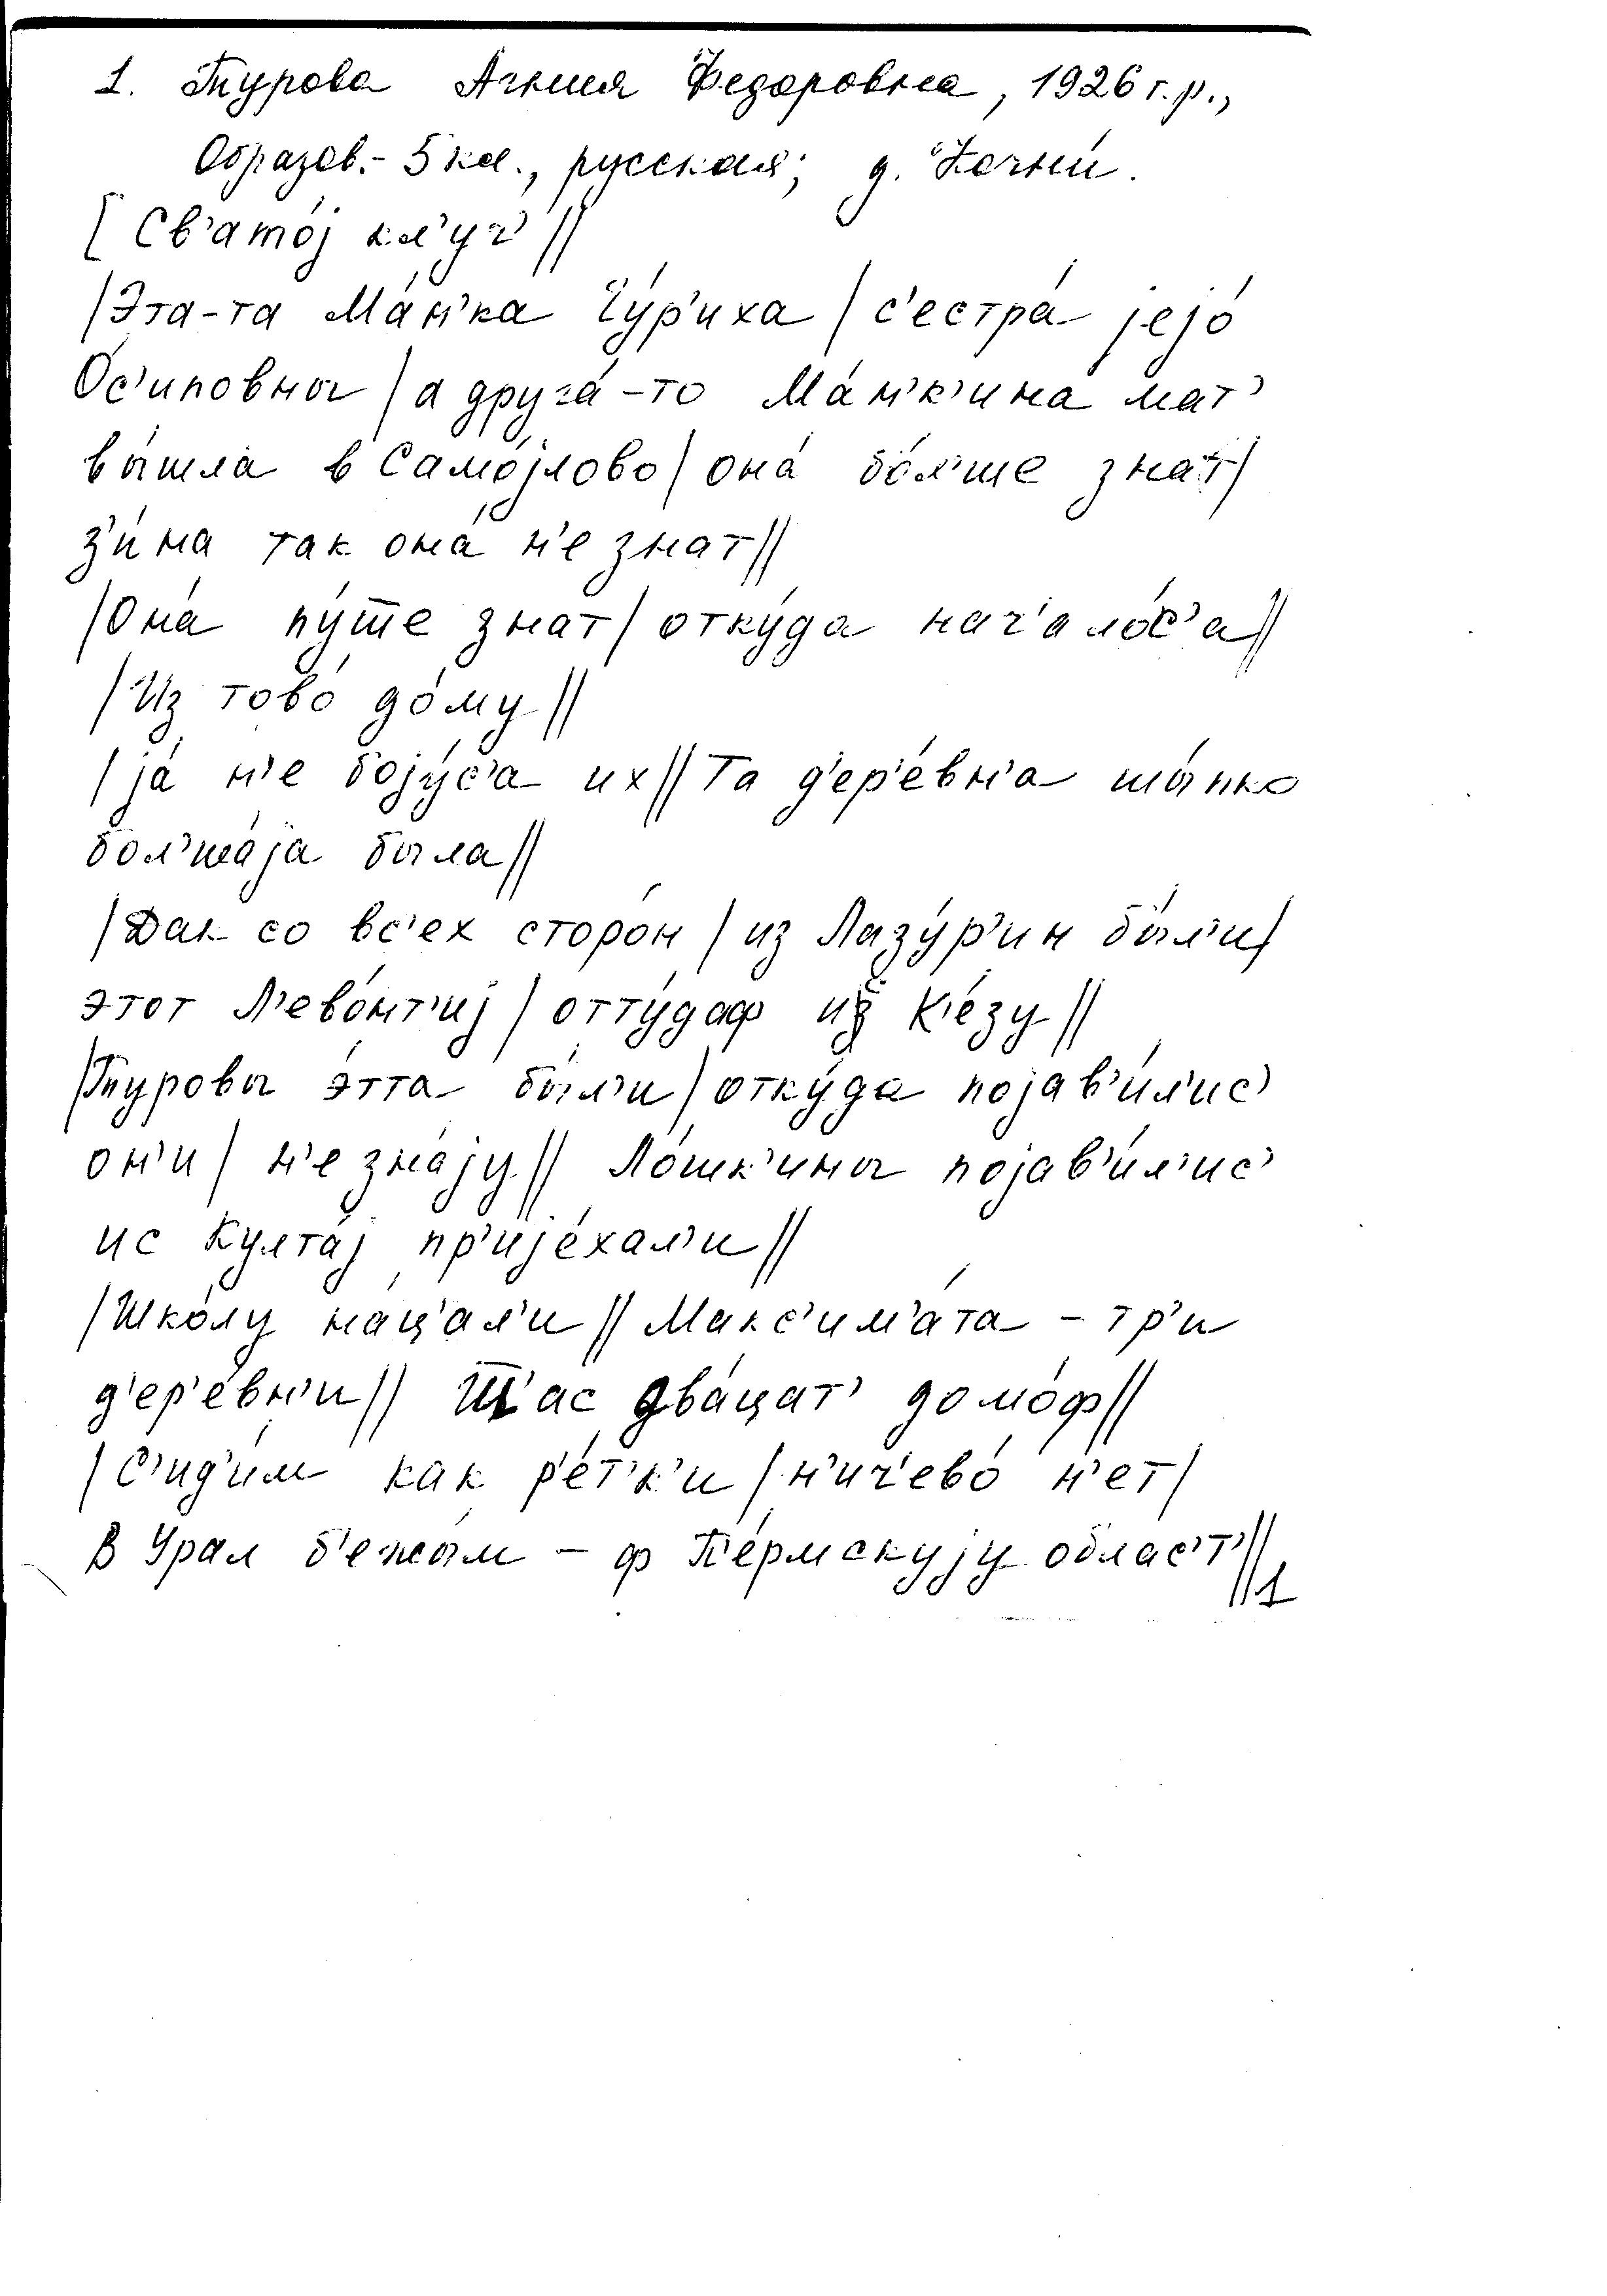 1. Турова Агния Федоровна, 1926 г.р.,
Образов.- 5 кл., русская; д.
[ Св'ато́j кл'уч' //
/ Эта-та Ма́н'ка Чу́р'иха / с'естра́ jejо́
О́с'иповны / а друга́-то Ма́н'к'ина мат'
вы́шла в Само́jлово / она́ бо́л'ше знат /
з'и́на так она́ н'е знат //
/ Она́ пу́ш'ше знат / отку́да нач'ало́с'а //
/ Из тово́ до́му //
/ jа́ н'е боjу́с'а их // Та д'ер'е́вн'а шы́пко
бол'ша́jа была //
/ Дак со вс'ех сторо́н / из Лазу́р'ин бы́л'и /
этот Л'ево́нт'иj / отту́даф из К'е́зу //
/ Туровы э́тта бы́л'и / отку́да поjав'и́л'ис'
он'и / н'е зна́jу // Ло́шк'ины поjав'и́л'ис'
ис Култа́j пр'иjе́хал'и //
/ Шко́лу на́ц'ал'и // Макс'им'а́та - тр'и
д'ер'е́вн'и // Ш'ас два́цат' домо́ф //
/ С'ид'и́м как р'е́т'к'и / н'ич'ево́ н'ет /
в Урал б'ежы́м - ф П'е́рмскуjу облас'т' // 1